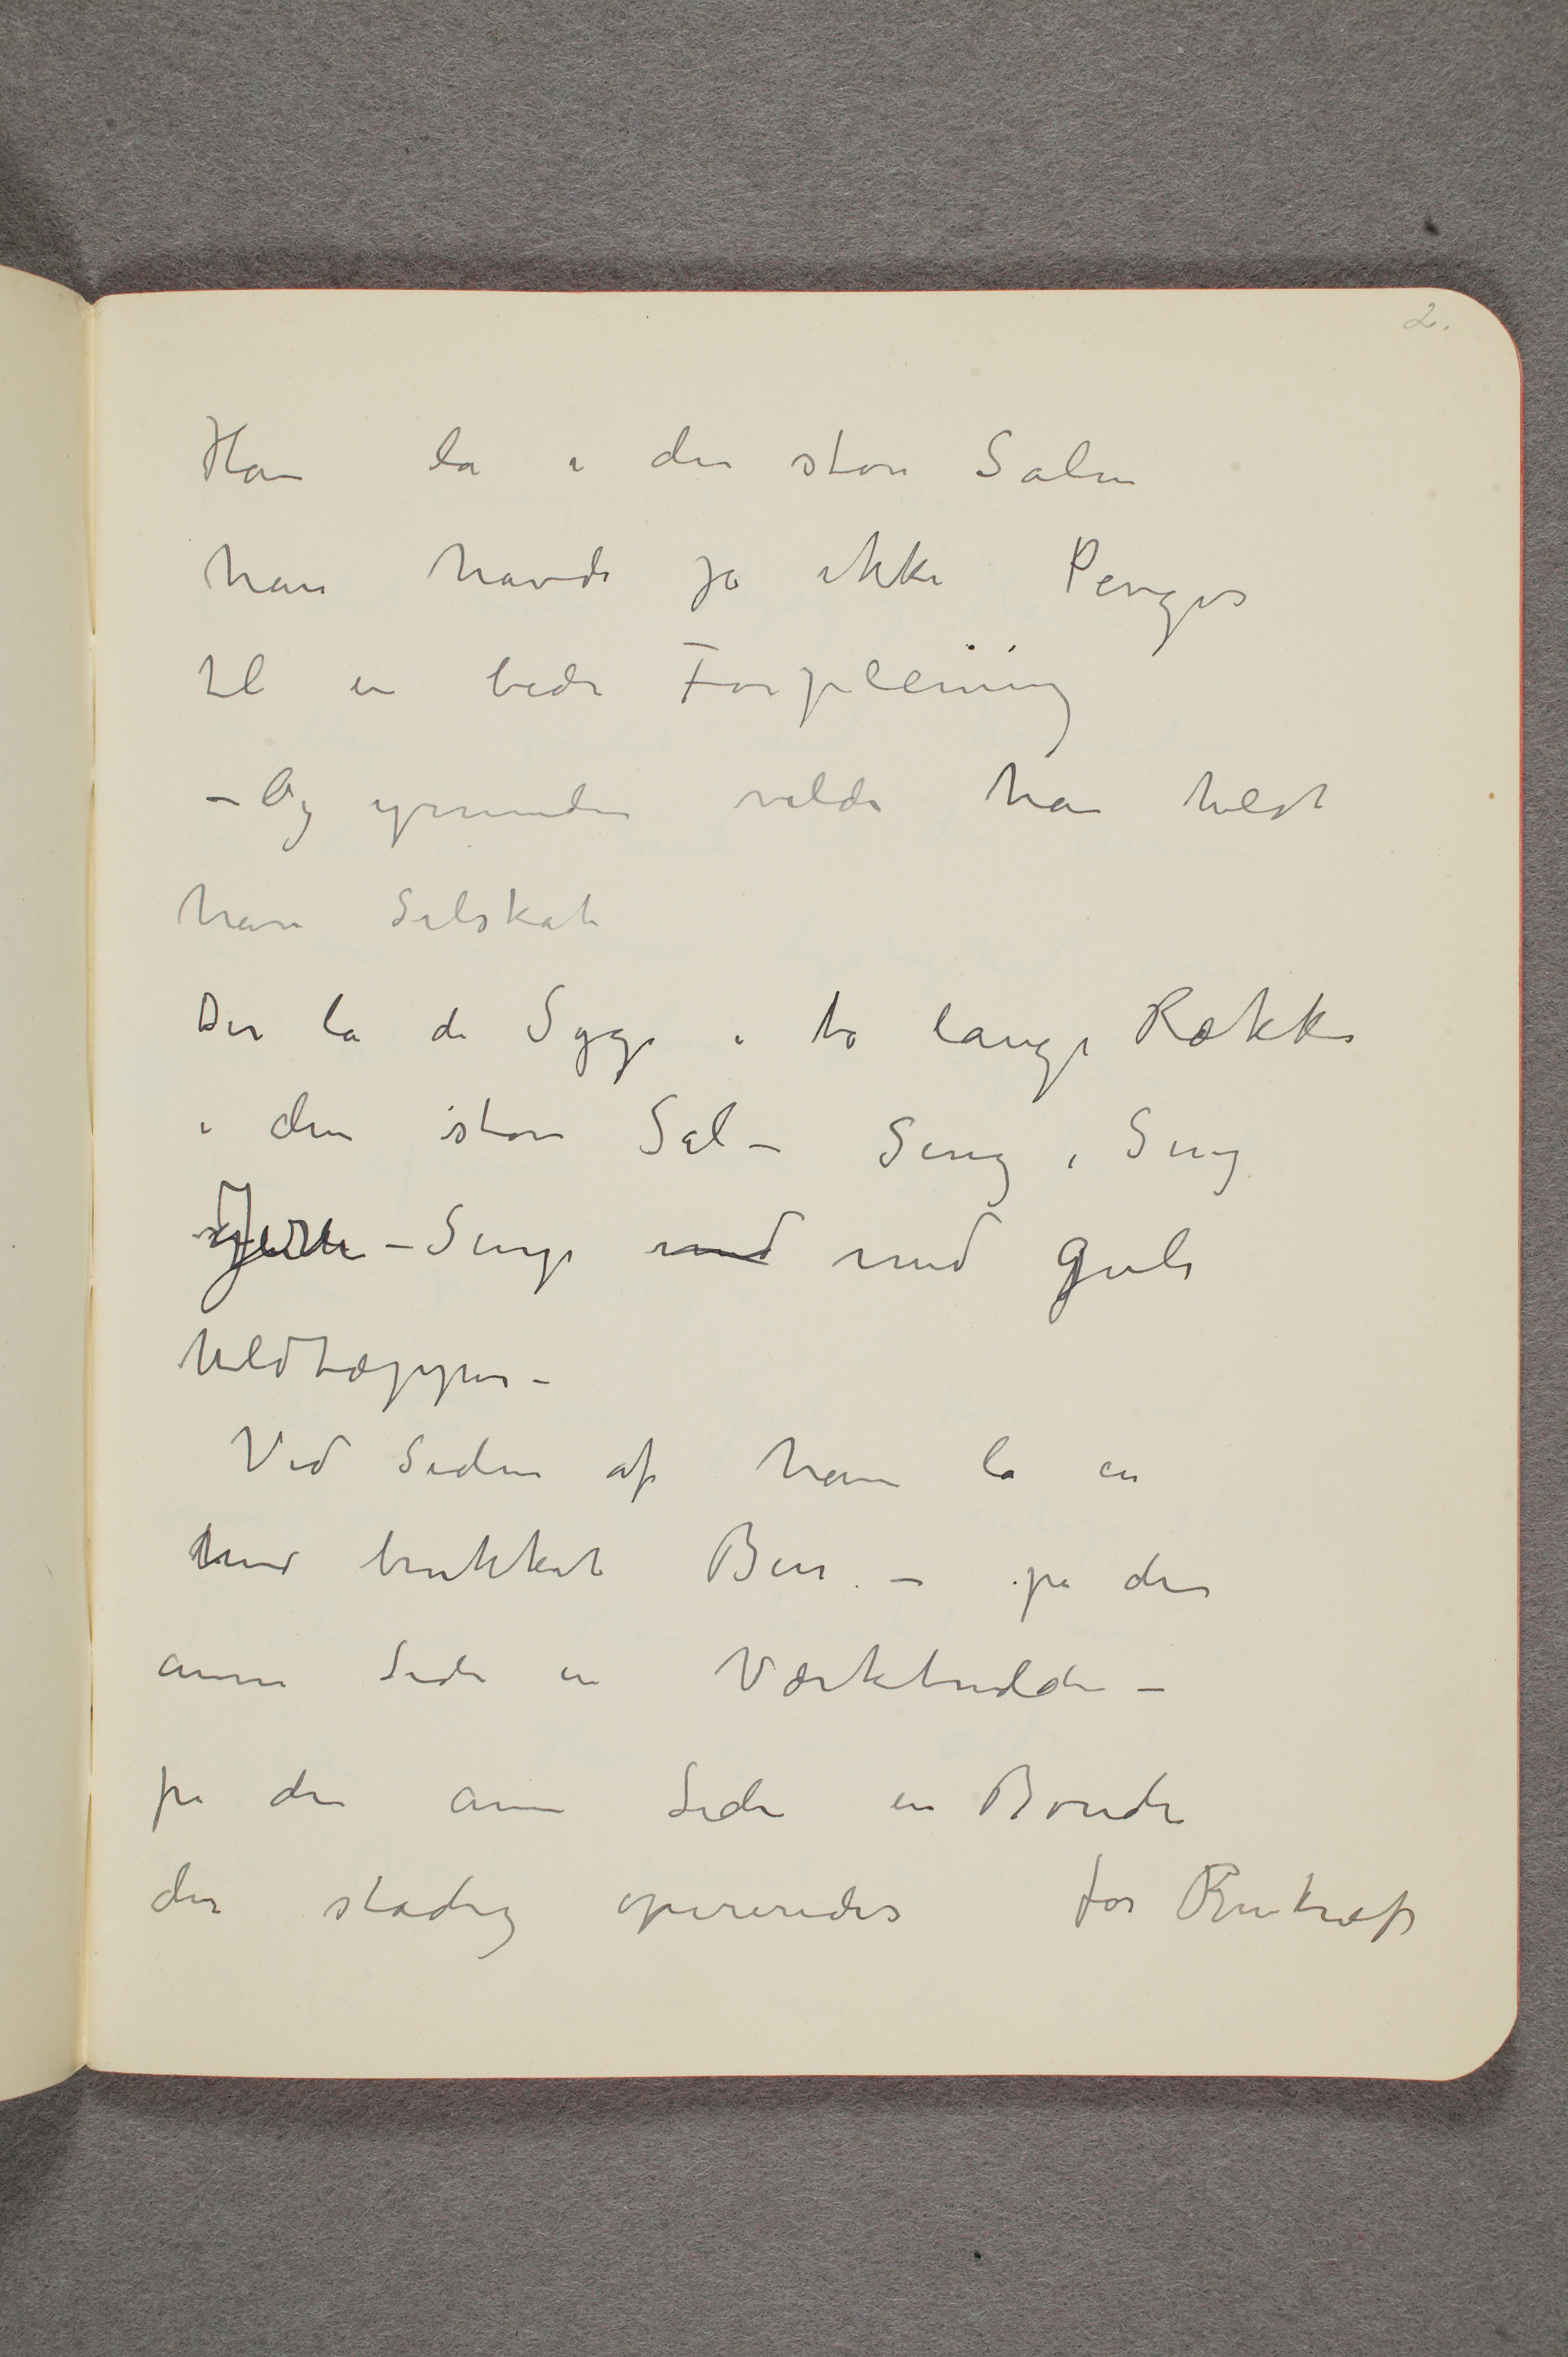 2.
Han la i den store Salen
han havde jo ikke Penger
til en bedre Forpleining
– Og grunden vilde han helst
have Selskab
Der la de Syge i to lange Rækker
i den store Sal – Seng i Seng
Jern – Senge med med gule
Uldtæpper –
Ved Siden af ham la en
med brukket Ben – på den
anne Side en Værkbruden –
på den anne Side en Bonde
der stadig opereredes for Benkræft